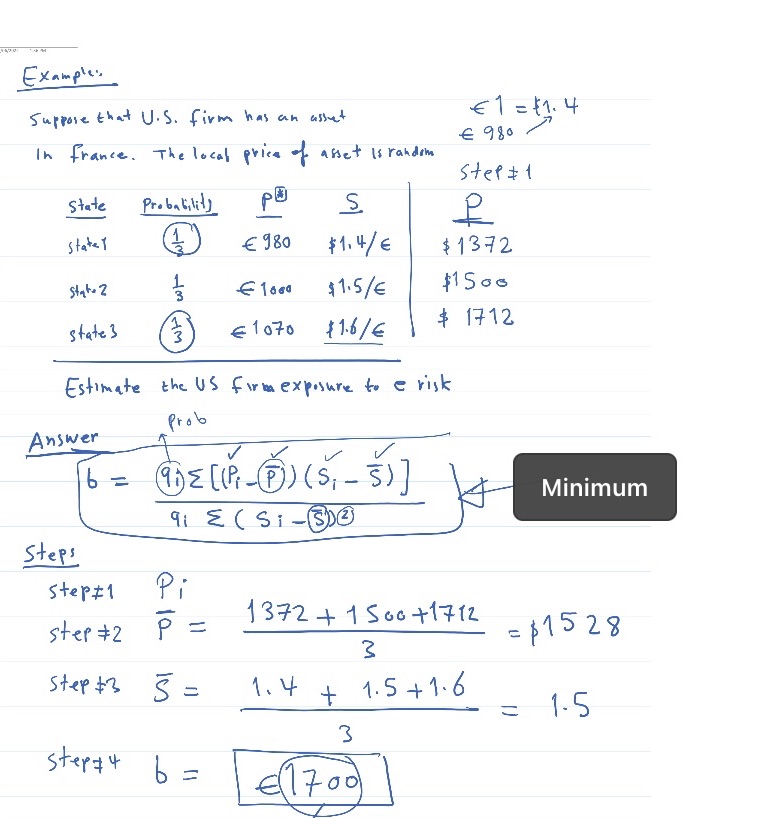 1:36 PM
Example:
Suppose that U.S. firm has an asset
In france. The local price of asset is random
€1 = $1.4
€ 980
Step #1
State Probability P* S P
State 1 1/3 € 980 $1.4/€ $1372
State 2 1/3 € 1000 $1.5/€ $1500
State 3 1/3 € 1070 $1.6/€ $ 1712
Estimate the US firm exposure to e risk
Prob
Answer
b = qi Σ [(Pi - P̄) (Si - S̄)]
qi Σ (Si - S̄)2
Minimum
Steps
Step #1 Pi
Step #2 P̄ = 1372 + 1500 + 1712 / 3 = $1528
Step #3 S̄ = 1.4 + 1.5 + 1.6 / 3 = 1.5
Step #4 b = € 1700